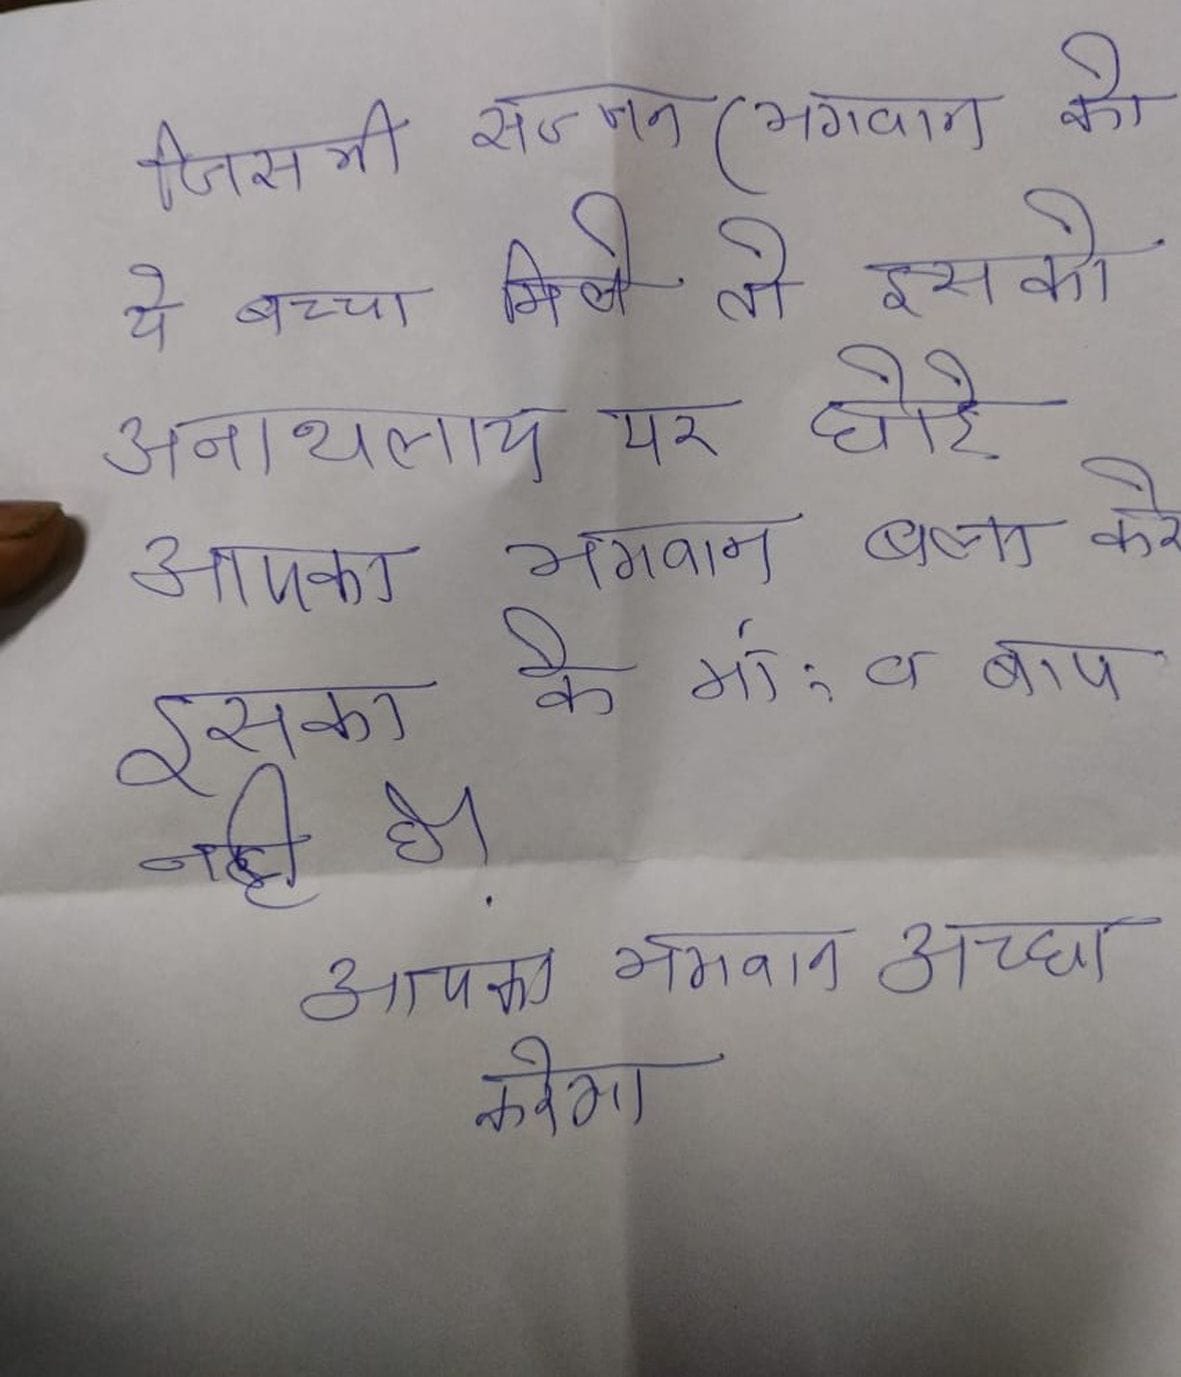 जिसभी सज्जन (भगवान को
ये बच्चा मिले तो इसको
अनाथलाय पर छोड़े
आपका भगवान बला करे
इसका के मां: व बाप
नही है।
आपका भगवान अच्छा
करेगा